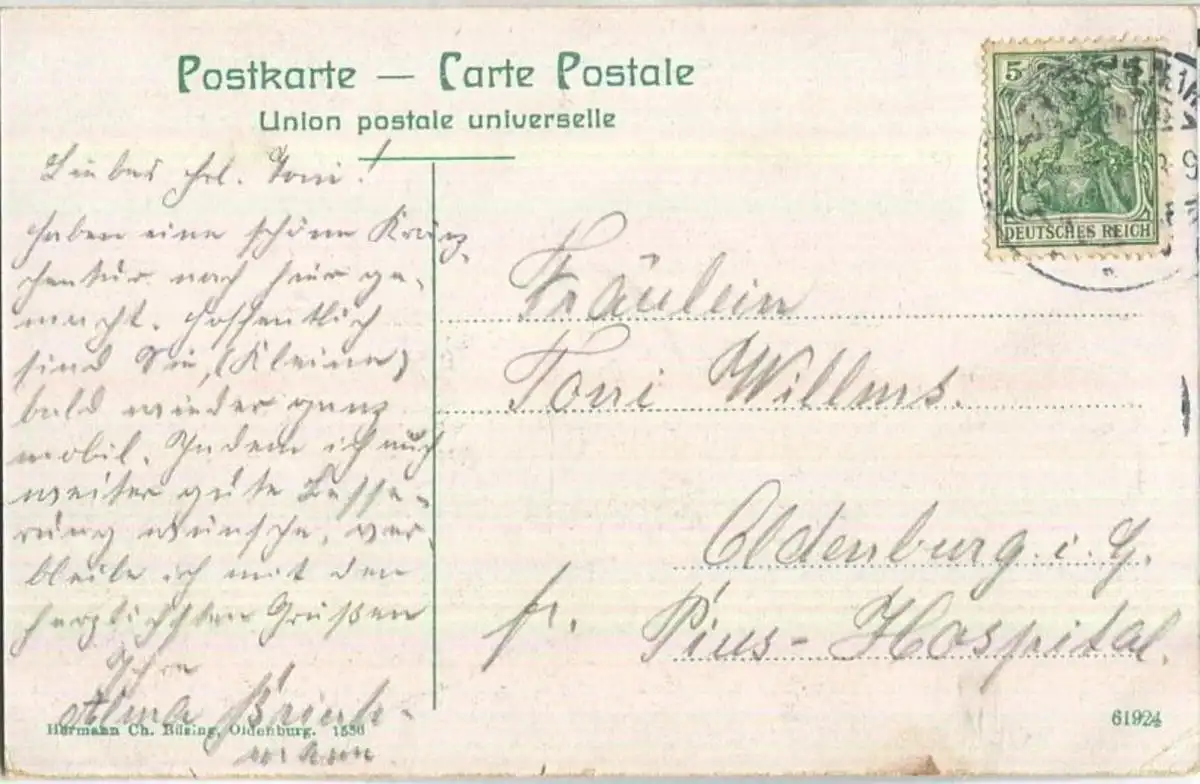 Postkarte — Carte Postale
Union postale universelle
5
DEUTSCHES REICH
Liebes Frl. Toni!
Haben eine schöne Kränz-
chentur nach hier ge-
macht. Hoffentlich
sind Sie, (Kleine)
bald wieder ganz
mobil. Indem ich auch
weiter gute Besse-
rung wünsche, ver-
bleibe ich mit den
herzlichsten Grüßen
Ihre
Alma Brink-
mann
Fräulein
Toni Willms.
Oldenburg i. G.
fr. Pius-Hospital.
Hermann Ch. Büsing, Oldenburg. 1550
61924